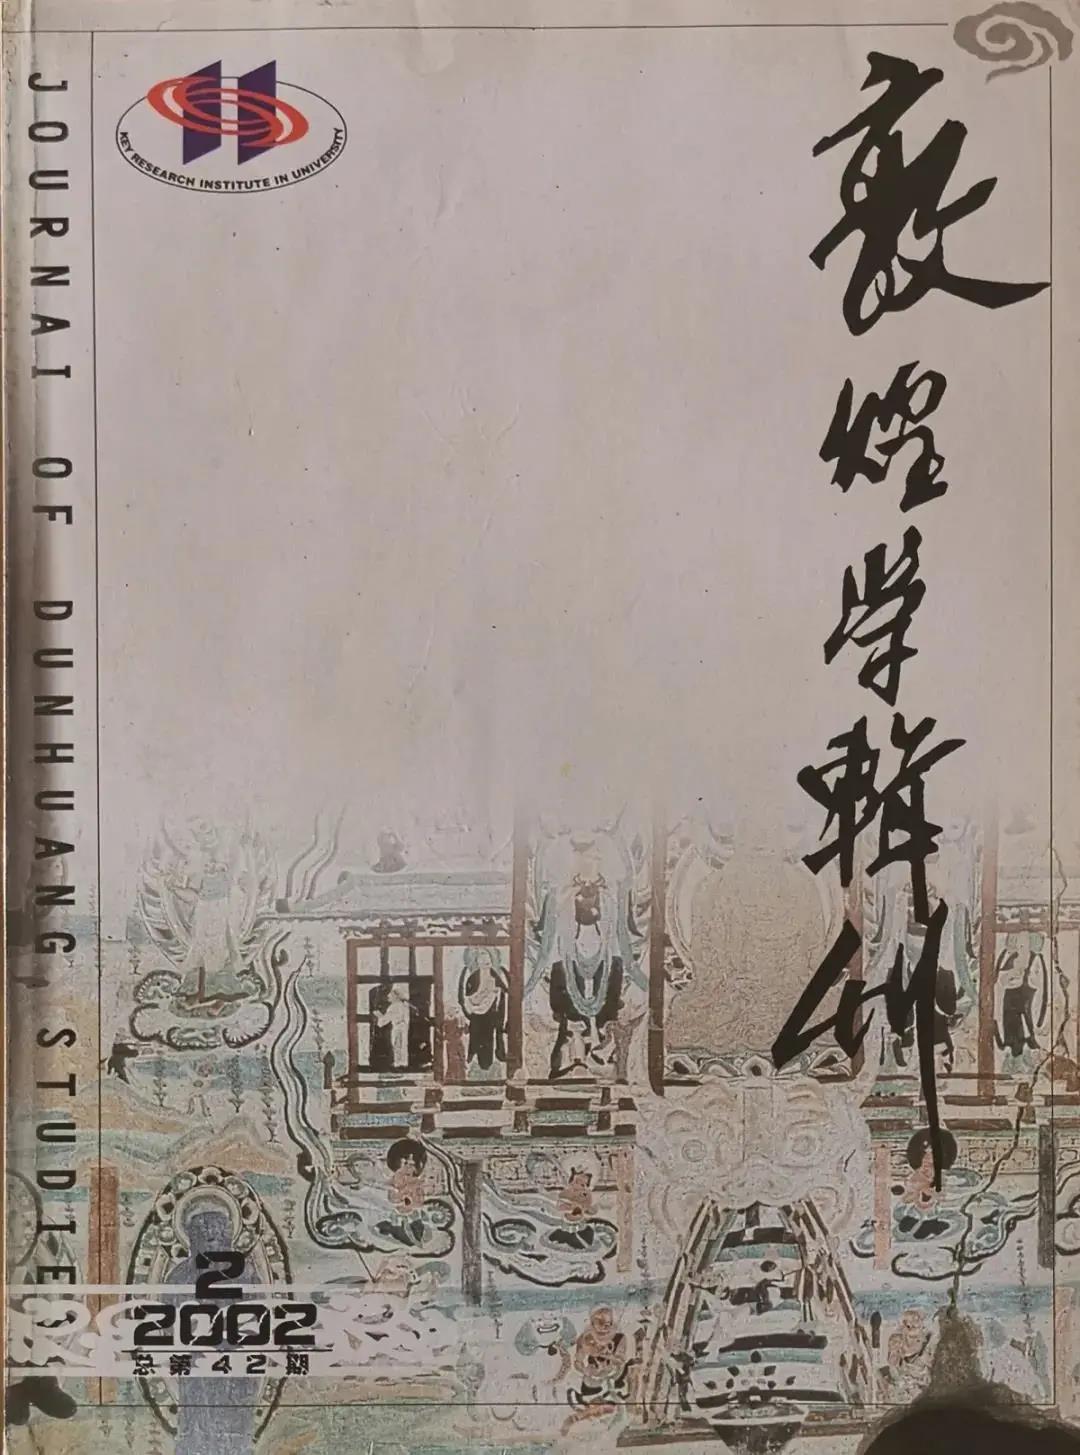 敦煌学輯刊
KEY RESEARCH INSTITUTE IN UNIVERSITY
JOURNAL OF DUNHUANG STUDIES
2
2002
总第42期